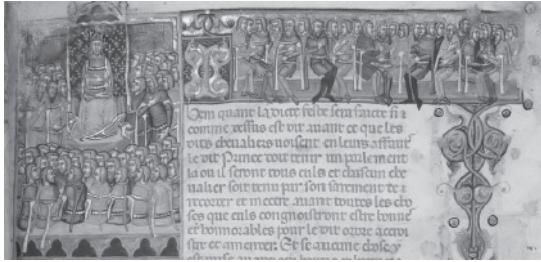 Item quant la dicte feste sera faicte si
comme dessus est dit auant ce que les
diz cheualiers uoisent en leurs affaires
le dit Prince doit tenir un parlement
la ou il seront tous euls et chascun che
ualier soit tenu par son sairement de
recorder et mectre auant toutes les cho
ses que euls congnoistront estre bonnes
et honnorables pour le dit ordre acroi
stre et amender. Et se aucune chose y